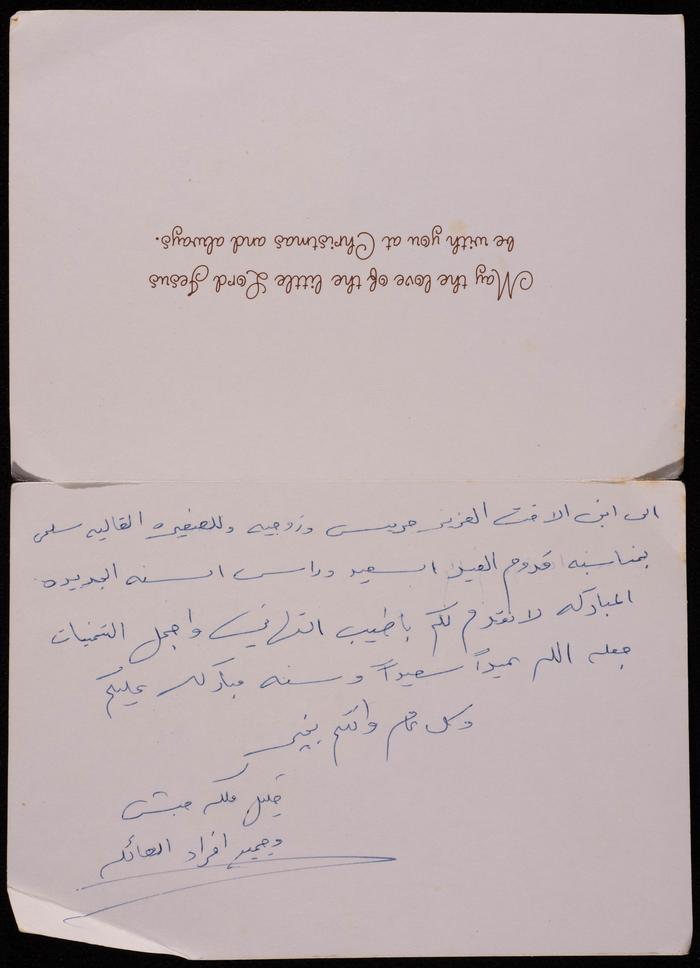 May the love of the little Lord Jesus
be with you at Christmas and always.
الى ابن الاخت العزيز موريس وزوجته وللصغيره الغاليه سلمى
بمناسبة قدوم العيد السعيد وراس السنه الجديده
المباركه لانقدم لكم باطيب التهاني واجمل التمنيات
جعله الله عيداً سعيداً وسنه مباركه عليكم
وكل عام وانتم بخير
خليل حبش
وجميع افراد العائله